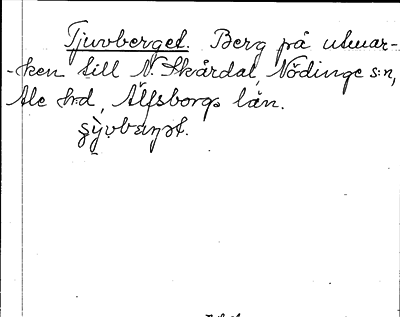 Tjuvberget. Berg på utmar-
-ken till N. Skårdal, Nödinge s:n,
Ale hrd, Älfsborgs län.